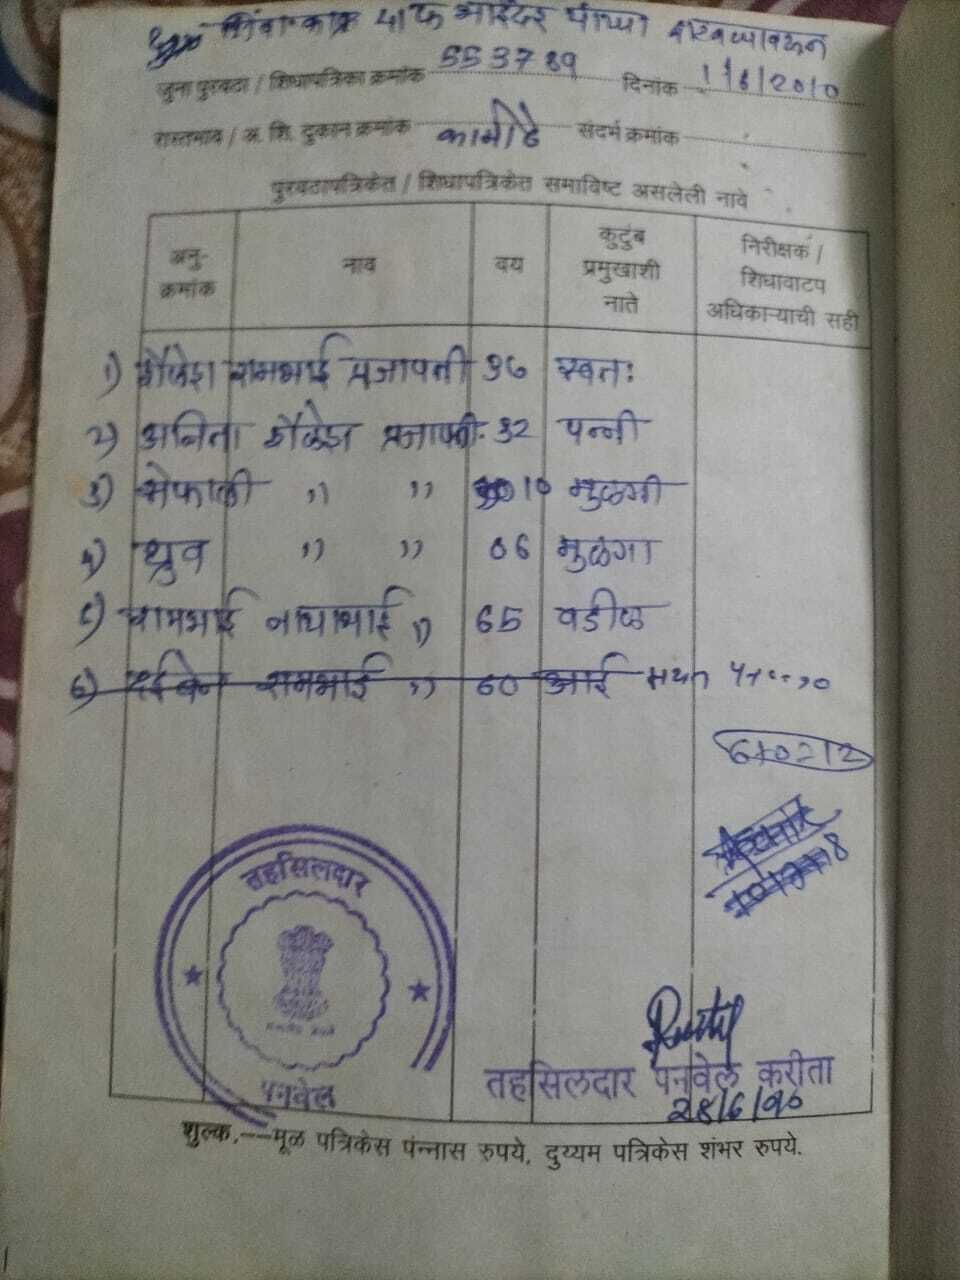 जुना पुरवठा / शिधापत्रिका क्रमांक 553789 दिनांक 1/6/2010
रास्तभाव / अ. शि. दुकान क्रमांक कामोठे संदर्भ क्रमांक
पुरवठापत्रिकेत / शिधापत्रिकेत समाविष्ट असलेली नावे
अनु-क्रमांक नाव वय कुटुंब प्रमुखाशी नाते निरीक्षक / शिधावाटप अधिकाऱ्याची सही
1) शैलेश रामभाई प्रजापती 36 स्वतः
2) अनिता शैलेश प्रजापती 32 पत्नी
3) शेफाली " " 10 मुलगी
4) ध्रुव " " 06 मुलगा
5) रामभाई नाथाभाई " 65 वडील
6) रामभाई " 60 आई
6+0=12
तहसिलदार
पनवेल
तहसिलदार पनवेल करीता
28/6/2010
शुल्क.—मूळ पत्रिकेस पंन्नास रुपये, दुय्यम पत्रिकेस शंभर रुपये.